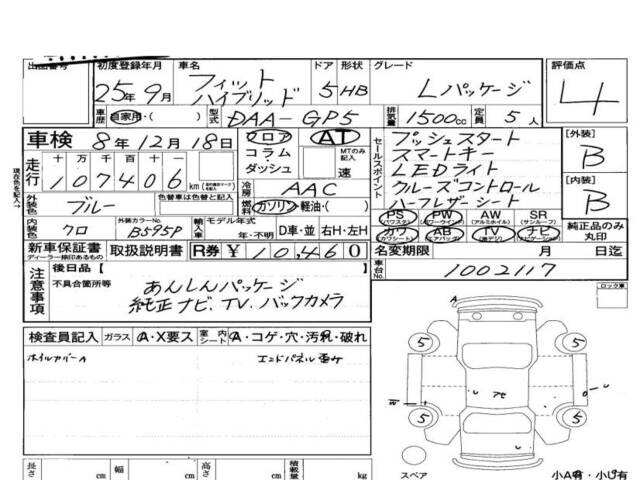 出品番号 初度登録年月 車名 ドア 形状 グレード 評価点
25年9月 フィット ハイブリッド 5 HB Lパッケージ 4
車歴 自家用・( ) 型式 DAA-GP5 排気量 1500cc 定員 5人
車検 8年12月18日 フロア AT
コラム MTのみ記入
ダッシュ 速
セールスポイント
プッシュスタート
スマートキー
LEDライト
クルーズコントロール
ハーフレザーシート
[外装] B
[内装] B
現在色を記入→
走行 十万千百十
107406 km
冷房 AAC
外装色 ブルー 色替車は色替と記入
燃料 ガソリン・軽油・( )
内装色 クロ 外装カラーNo. B595P 輸入車 モデル年式 年・不明 D車・並 右H・左H
PS (パワステ) PW (パワーウインドウ) AW (アルミホイル) SR (サンルーフ)
カワ (カワシート) AB (エアバッグ) TV ナビ (ナビゲーション)
純正品のみ丸印
新車保証書 ディーラー捺印あるもの 取扱説明書 R券 ¥10,460 名変期限 月 日迄
車台No. 1002117
注意事項
後日品 [ ]
不具合箇所等
あんしんパッケージ
純正ナビ、TV、バックカメラ
ロック車
検査員記入 ガラス A・X要ス 室内シート A・コゲ・穴・汚れ・破れ
ホイルカバーA エンドパネル歪み
A
5 5
W
5 5
スペア
長さ cm 幅 cm 高さ cm 積載量 kg
小A有・小U有